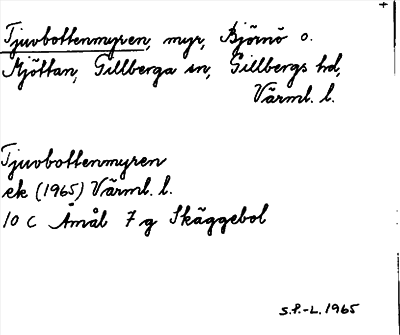 Tjuvbottenmyren, myr, Björnö o.
Mjöttan, Gillberga sn, Gillbergs hd,
Värml. l.
Tjuvbottenmyren
ek (1965) Värml. l.
10 C Åmål 7 g Skäggebol
S.P.-L. 1965